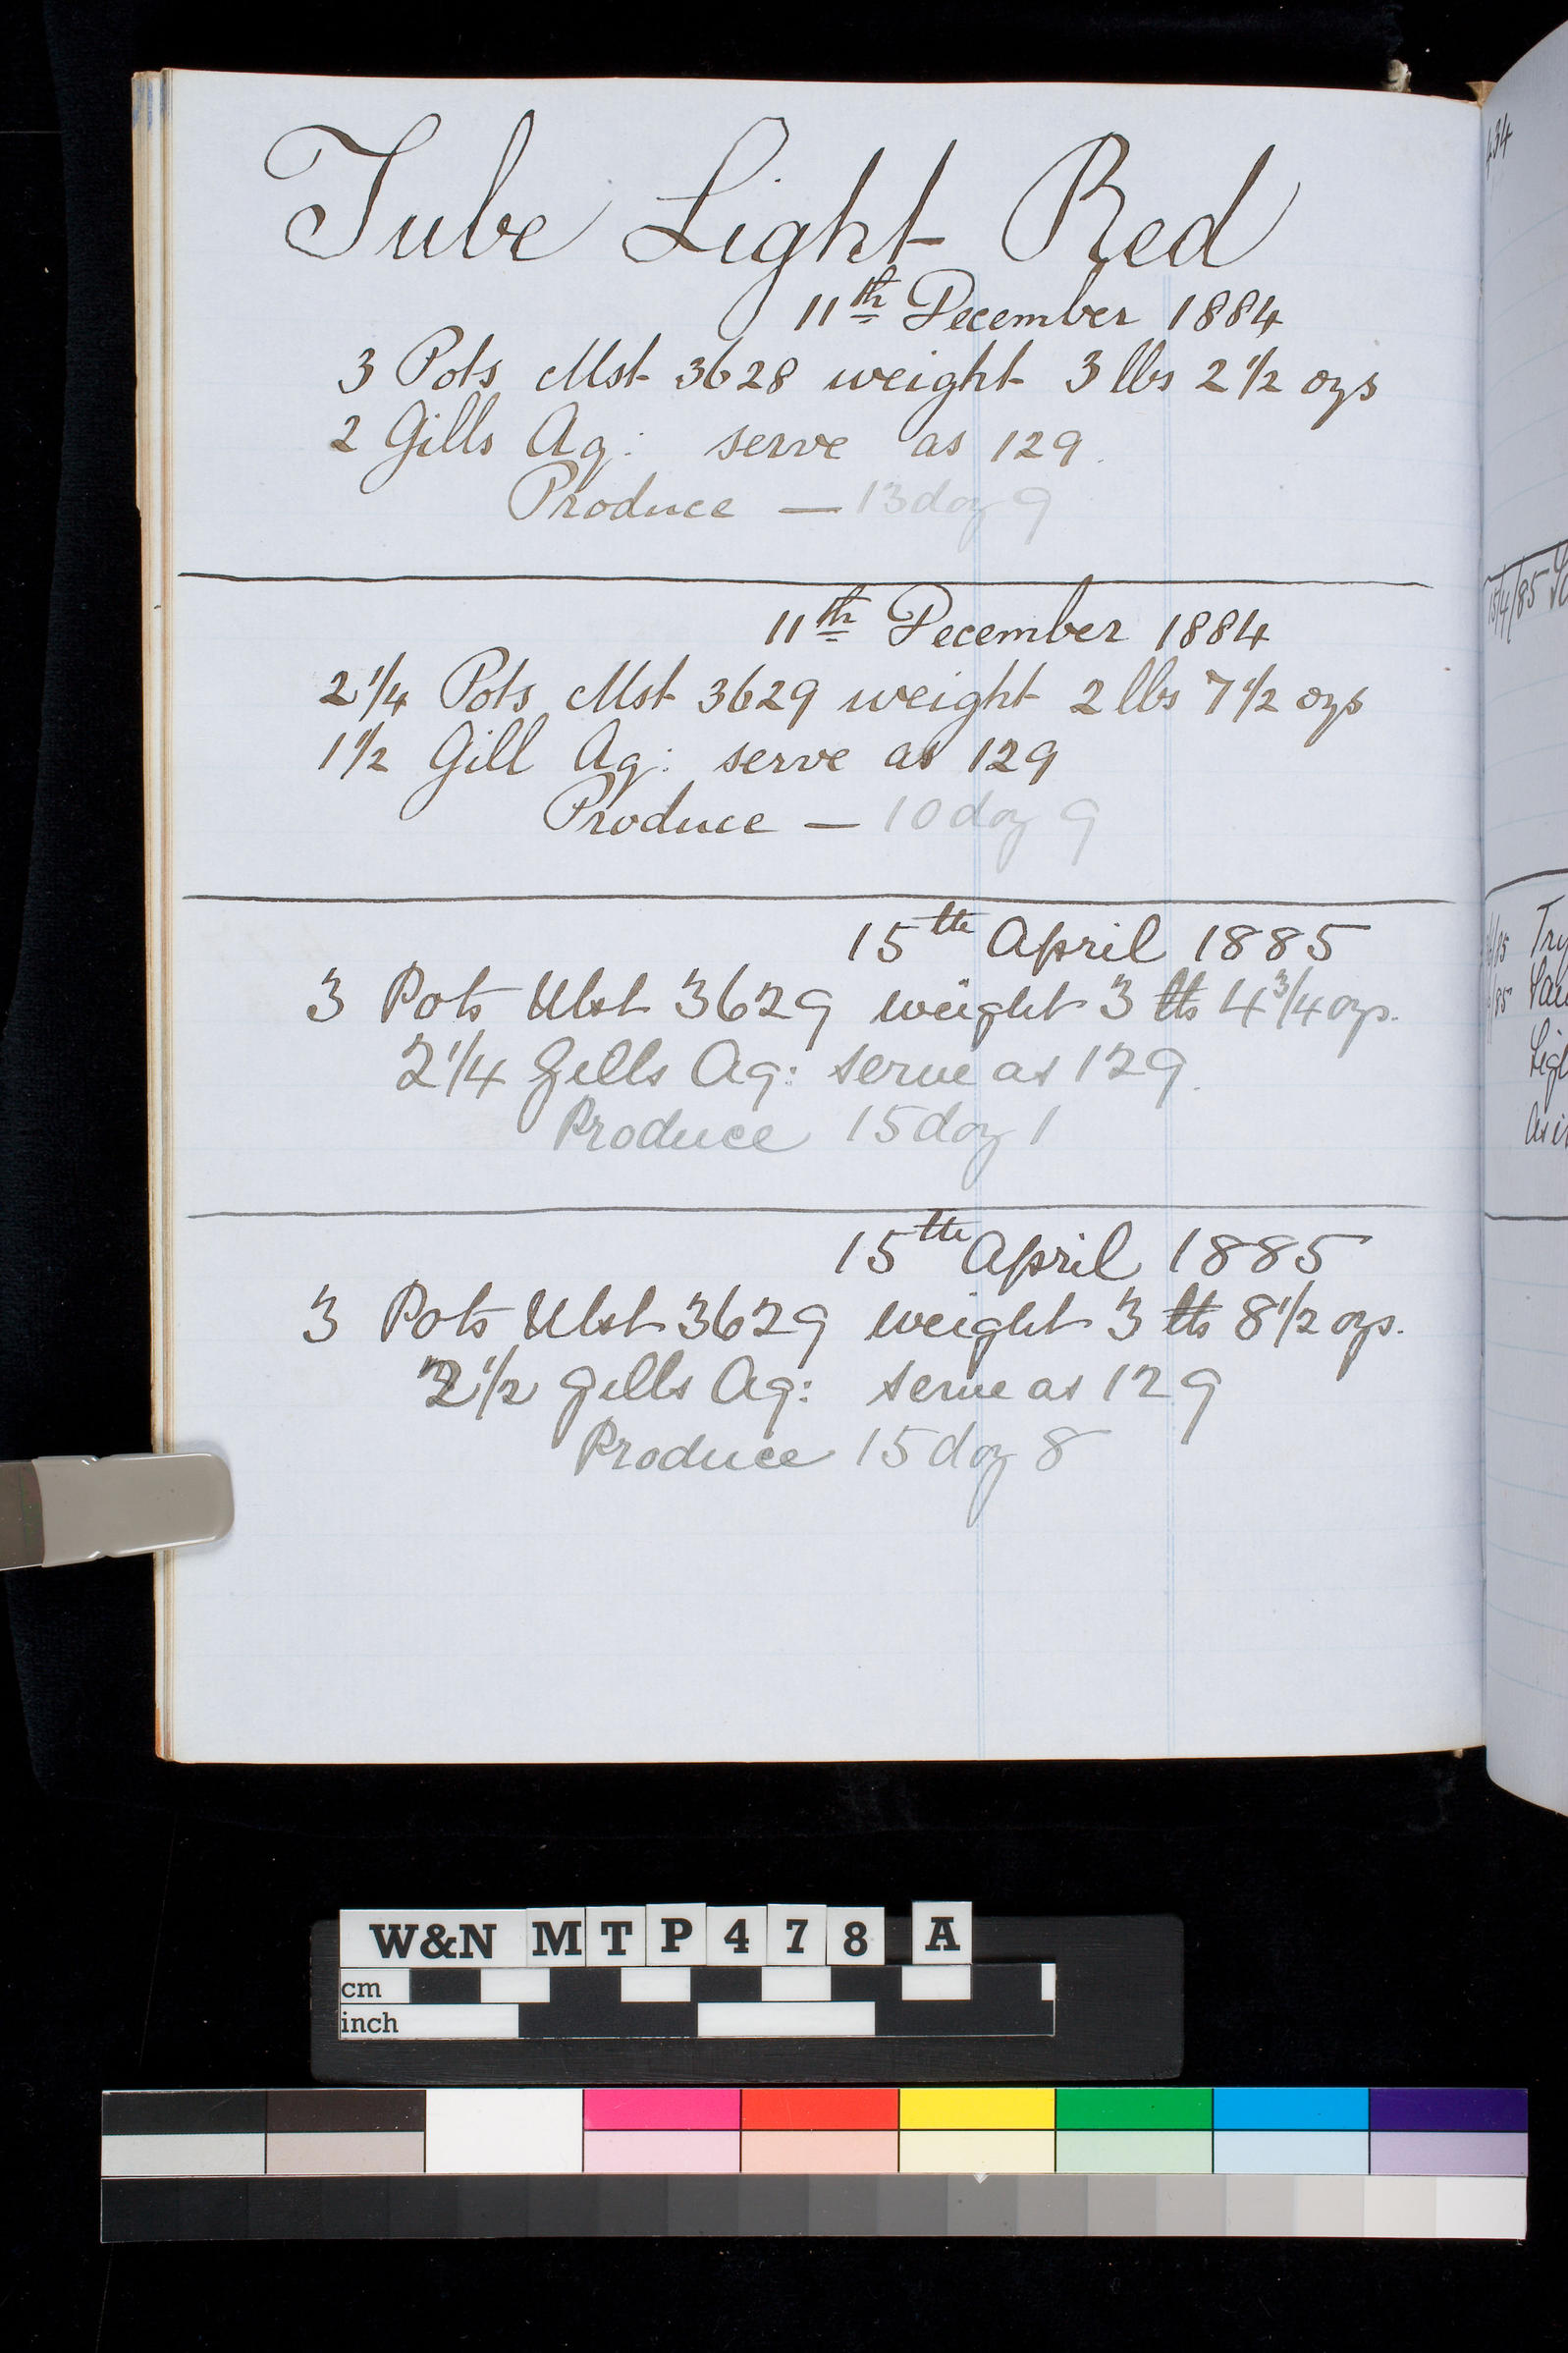 Tube Light Red
11th December 1884
3 Pots Mst 3628 weight 3 lbs 2 1/2 ozs
2 Gills Aq: serve as 129.
Produce — 13 doz 9
11th December 1884
2 1/4 Pots Mst 3629 weight 2 lbs 7 1/2 ozs
1 1/2 Gill Aq: serve as 129
Produce — 10 doz 9
15th April 1885
3 Pots Mst 3629 weight 3 lbs 4 3/4 ozs.
2 1/4 Gills Aq: serve as 129.
Produce 15 doz 1
15th April 1885
3 Pots Mst 3629 weight 3 lbs 8 1/2 ozs.
2 1/2 Gills Aq: serve as 129
Produce 15 doz 8
434
15/4/85
Try
W&N MTP478 A
cm
inch